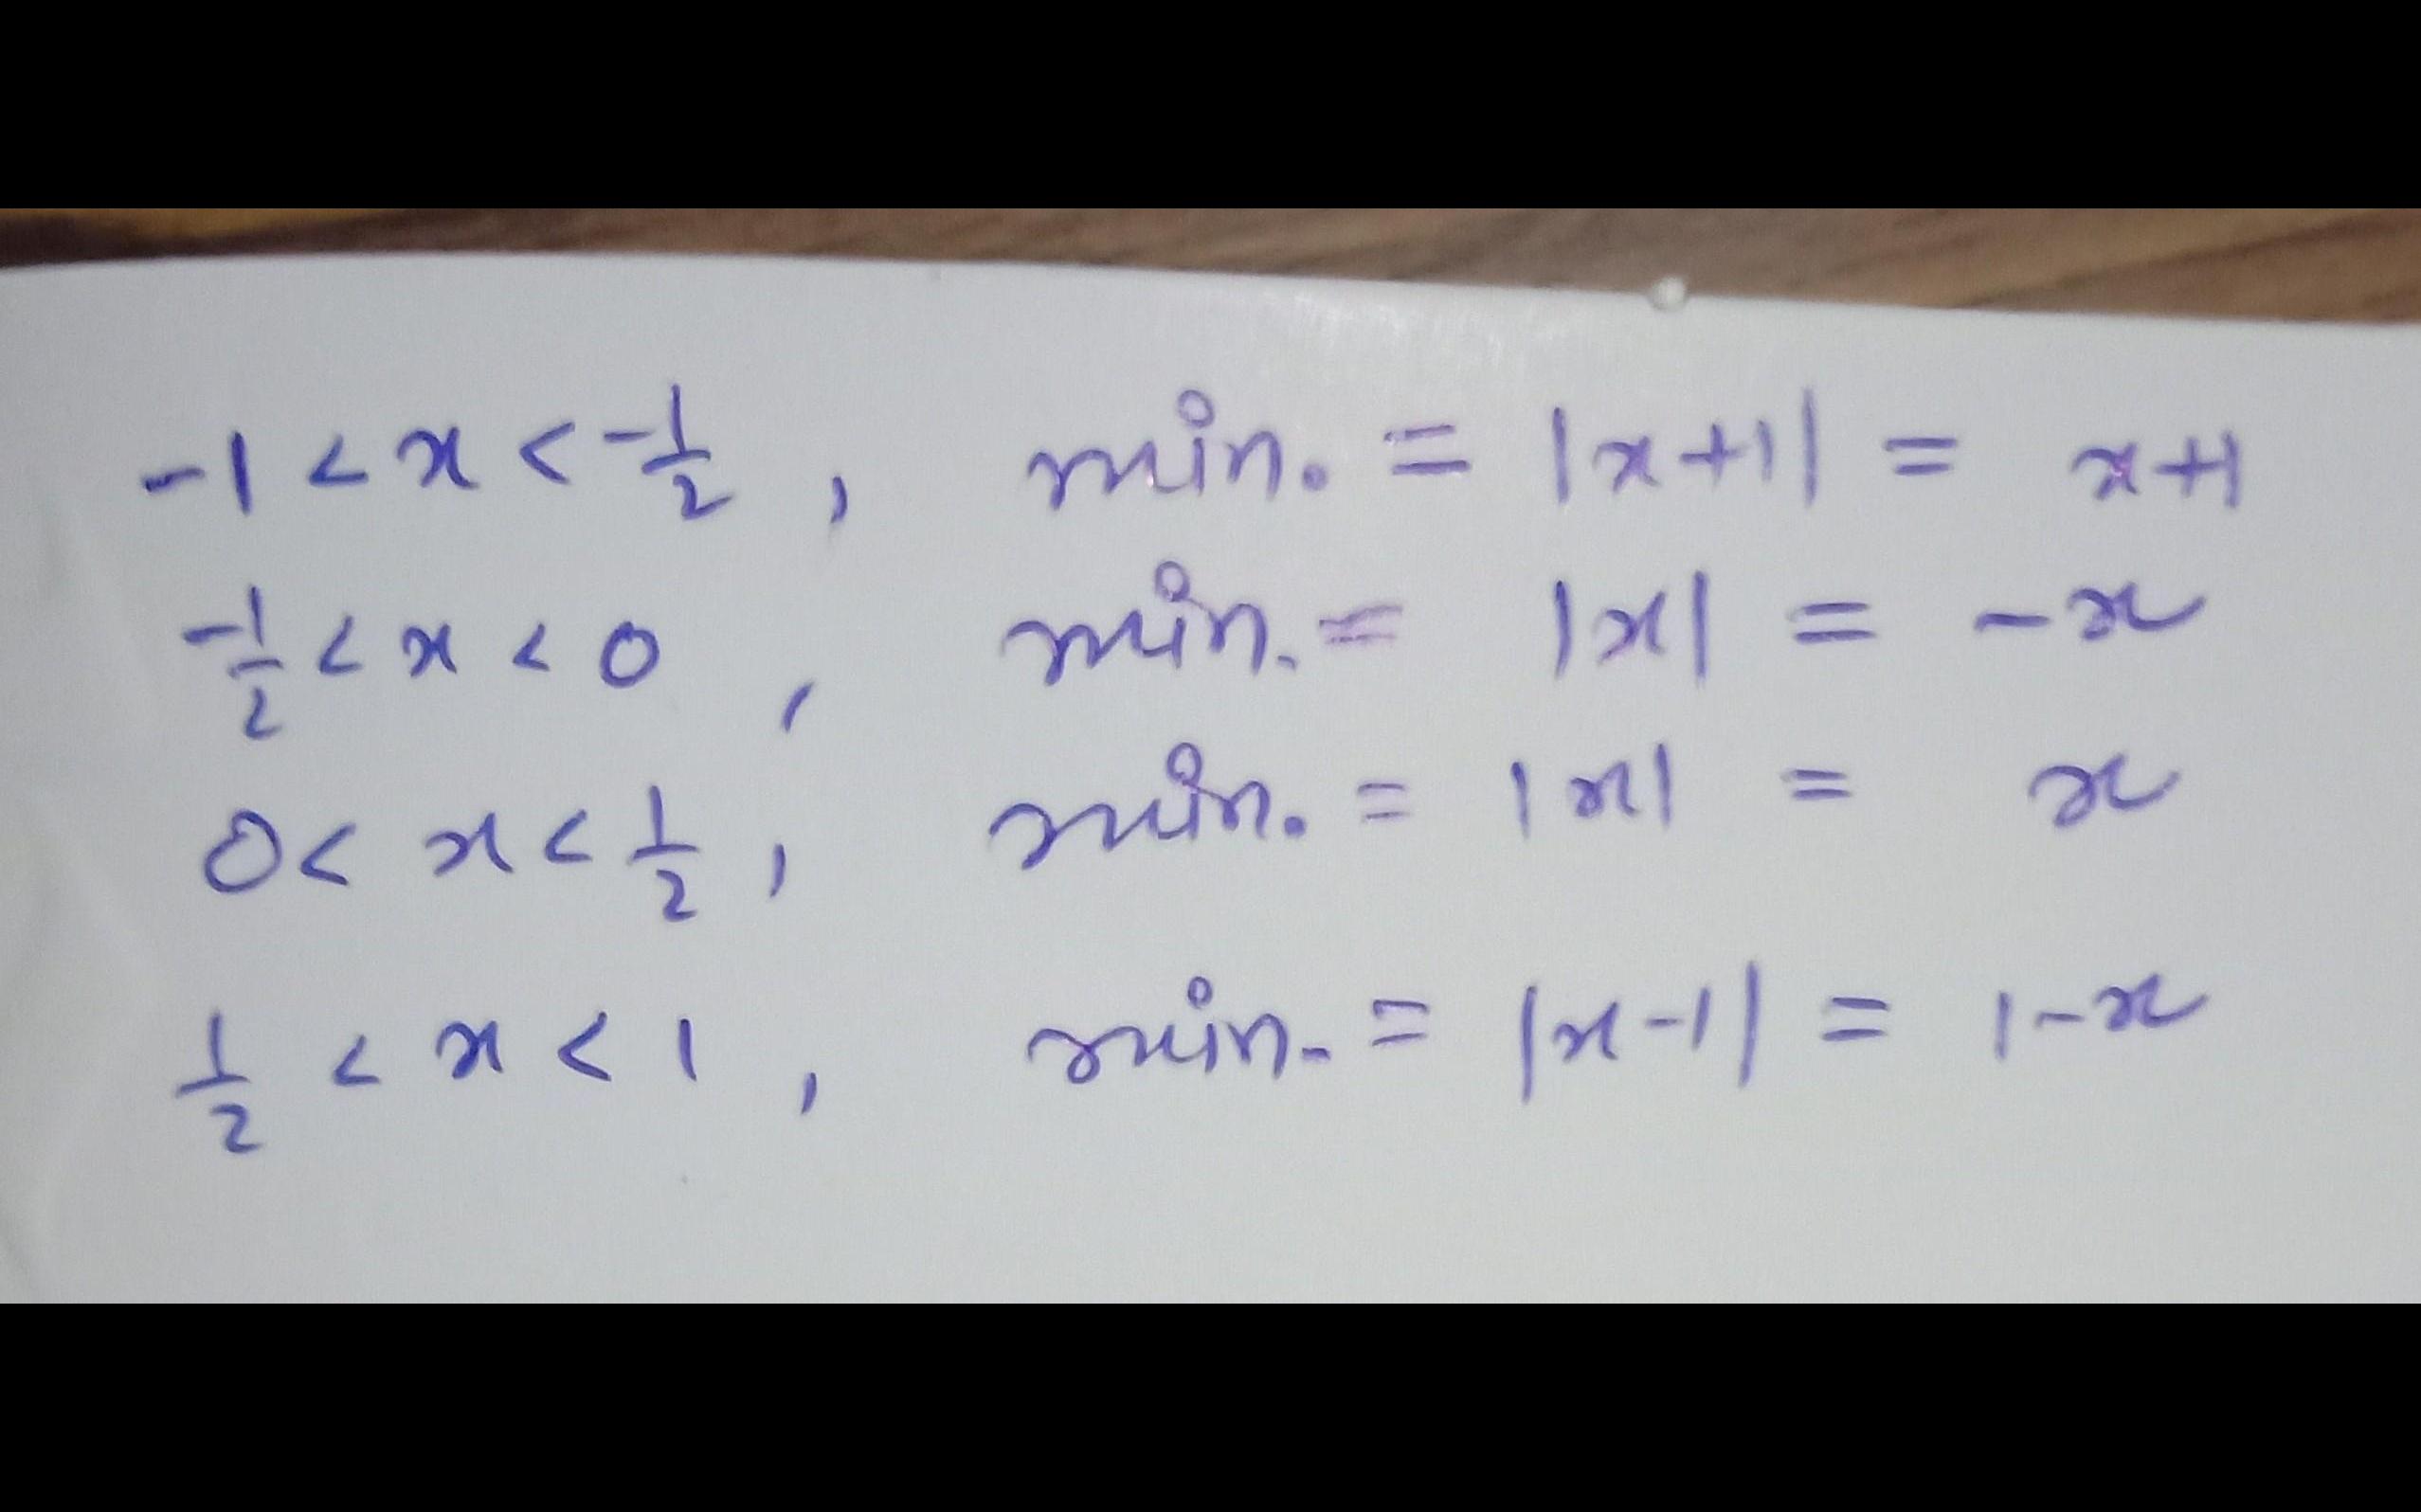 -1 < x < -1/2 , min. = |x+1| = x+1
-1/2 < x < 0 , min. = |x| = -x
0 < x < 1/2 , min. = |x| = x
1/2 < x < 1 , min. = |x-1| = 1-x